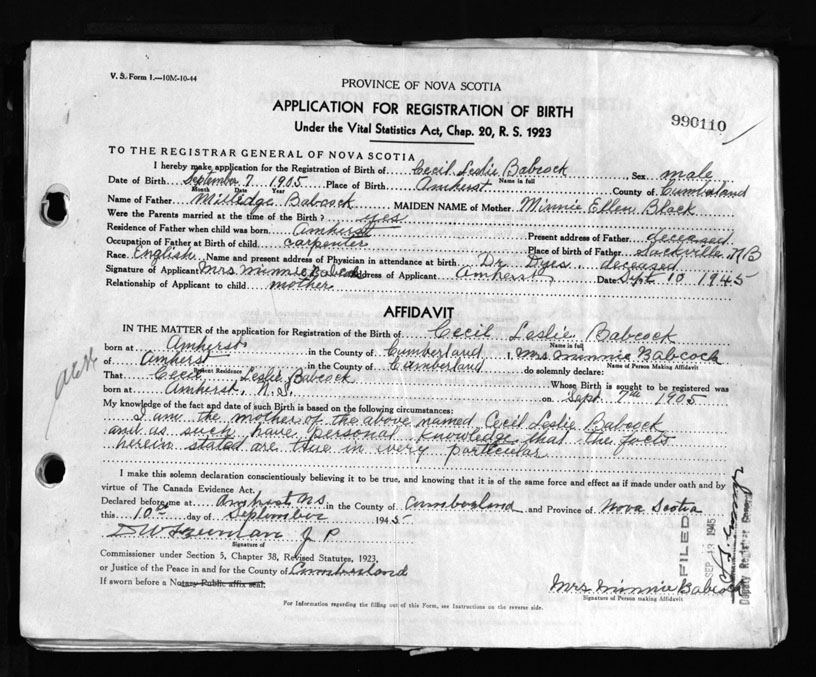 V. S. Form 1.—10M-10-44
PROVINCE OF NOVA SCOTIA
APPLICATION FOR REGISTRATION OF BIRTH
Under the Vital Statistics Act, Chap. 20, R. S. 1923
990110
TO THE REGISTRAR GENERAL OF NOVA SCOTIA
I hereby make application for the Registration of Birth of Cecil Leslie Babcock, Sex male
Name in full
Date of Birth September 7, 1905 Place of Birth Amherst County of Cumberland
Month Date Year
Name of Father Milledge Babcock MAIDEN NAME of Mother Minnie Ellen Black
Were the Parents married at the time of the Birth? yes
Residence of Father when child was born Amherst Present address of Father deceased
Occupation of Father at Birth of child carpenter Place of birth of Father Sackville NB
Race English Name and present address of Physician in attendance at birth Dr Dyes deceased
Signature of Applicant Mrs Minnie Babcock Address of Applicant Amherst Date Sept 10 1945
Relationship of Applicant to child mother
AFFIDAVIT
IN THE MATTER of the application for Registration of the Birth of Cecil Leslie Babcock
Name in full
born at Amherst in the County of Cumberland I, Mrs Minnie Babcock
Name of Person Making Affidavit
of Amherst in the County of Cumberland do solemnly declare:
Present Residence
That Cecil Leslie Babcock Whose Birth is sought to be registered was
born at Amherst, N.S. on Sept. 7th 1905
My knowledge of the fact and date of such Birth is based on the following circumstances:
I am the mother of the above named Cecil Leslie Babcock
and as such have personal knowledge that the facts
herein stated are true in every particular
I make this solemn declaration conscientiously believing it to be true, and knowing that it is of the same force and effect as if made under oath and by
virtue of The Canada Evidence Act.
Declared before me at Amherst NS in the County of Cumberland and Province of Nova Scotia
this 10th day of September 1945
J P
Signature of
Commissioner under Section 5, Chapter 38, Revised Statutes, 1923,
or Justice of the Peace in and for the County of Cumberland
If sworn before a Notary Public affix seal.
Mrs Minnie Babcock
Signature of Person making Affidavit
FILED
SEP 13 1945
Deputy Registrar General
For Information regarding the filling out of this Form, see Instructions on the reverse side.